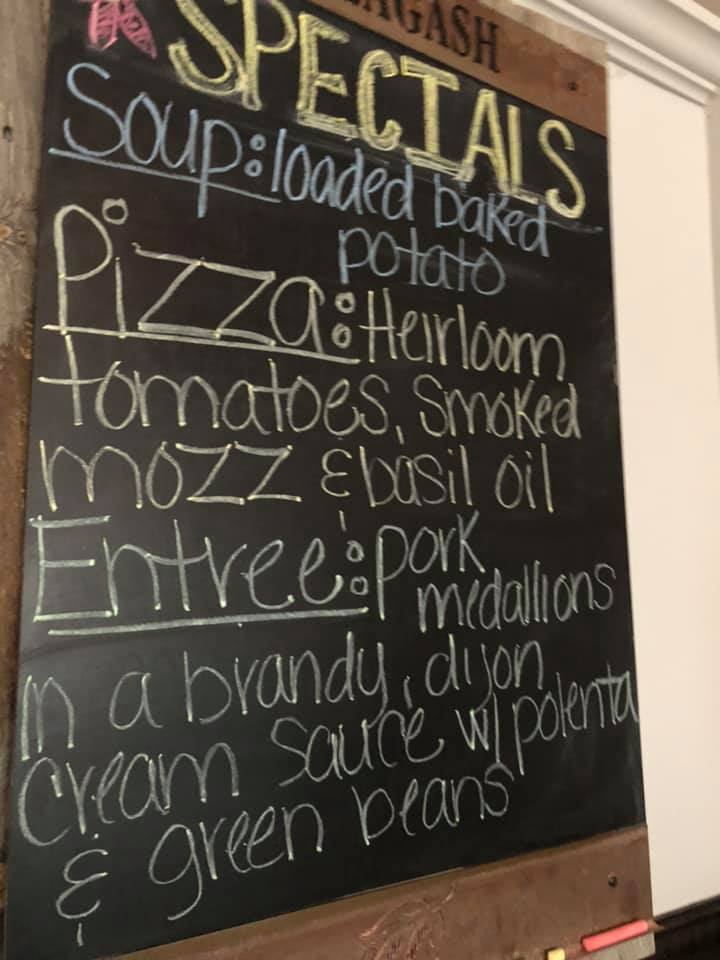 AGASH
SPECIALS
Soup: loaded baked
potato
Pizza: Heirloom
tomatoes, smoked
mozz & basil oil
Entree: pork
medallions
in a brandy, dijon
cream sauce w/ polenta
& green beans